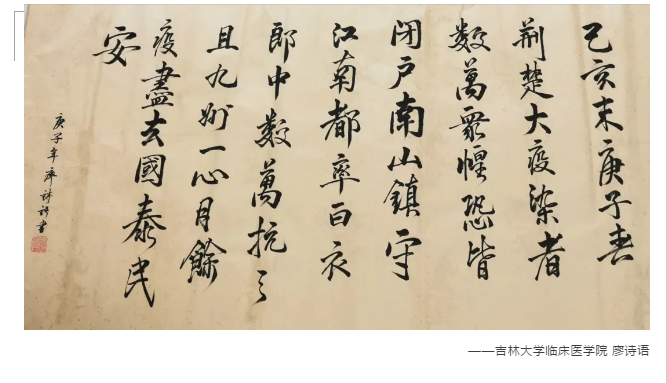 己亥末庚子春
荆楚大疫染者
数萬眾惶恐皆
闭户南山鎮守
江南都率白衣
郎中数萬抗之
且九州一心月餘
疫盡去國泰民
安
庚子年廖詩語書
——吉林大学临床医学院 廖诗语